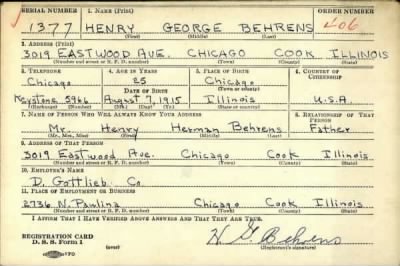 SERIAL NUMBER 1. NAME (Print) ORDER NUMBER
1377 HENRY GEORGE BEHRENS 406
(First) (Middle) (Last)
2. ADDRESS (Print)
3019 EASTWOOD AVE. CHICAGO COOK ILLINOIS
(Number and street or R. F. D. number) (Town) (County) (State)
3. TELEPHONE 4. AGE IN YEARS 5. PLACE OF BIRTH 6. COUNTRY OF CITIZENSHIP
Chicago 25 Chicago
DATE OF BIRTH (Town or county)
Keystone 5966 August 7, 1915 Illinois U.S.A.
(Exchange) (Number) (Mo.) (Day) (Yr.) (State or country)
7. NAME OF PERSON WHO WILL ALWAYS KNOW YOUR ADDRESS 8. RELATIONSHIP OF THAT PERSON
Mr. Henry Herman Behrens Father
(Mr., Mrs., Miss) (First) (Middle) (Last)
9. ADDRESS OF THAT PERSON
3019 Eastwood Ave. Chicago Cook Illinois
(Number and street or R. F. D. number) (Town) (County) (State)
10. EMPLOYER'S NAME
D. Gottlieb Co.
11. PLACE OF EMPLOYMENT OR BUSINESS
2736 N. Paulina Chicago Cook Illinois
(Number and street or R. F. D. number) (Town) (County) (State)
I AFFIRM THAT I HAVE VERIFIED ABOVE ANSWERS AND THAT THEY ARE TRUE.
REGISTRATION CARD
D. S. S. Form 1 H G Behrens
(Registrant's signature)